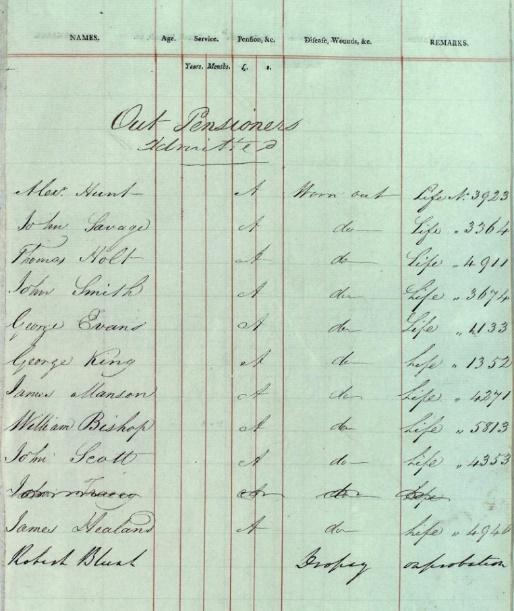 NAMES. Age. Service. Pension, &c. Disease, Wounds, &c. REMARKS.
Years. Months. £. s.
Out Pensioners
Admitted
Alexr. Hunt A Worn out Life No. 3923
John Savage A do Life " 3364
Thomas Holt A do Life " 4911
John Smith A do Life " 3674
George Evans A do Life " 1133
George King A do Life " 1352
James Manson A do Life " 4271
William Bishop A do Life " 5813
John Scott A do Life " 4353
John A do Life
James Healand A do Life " 4946
Robert Blush Dropsy on probation